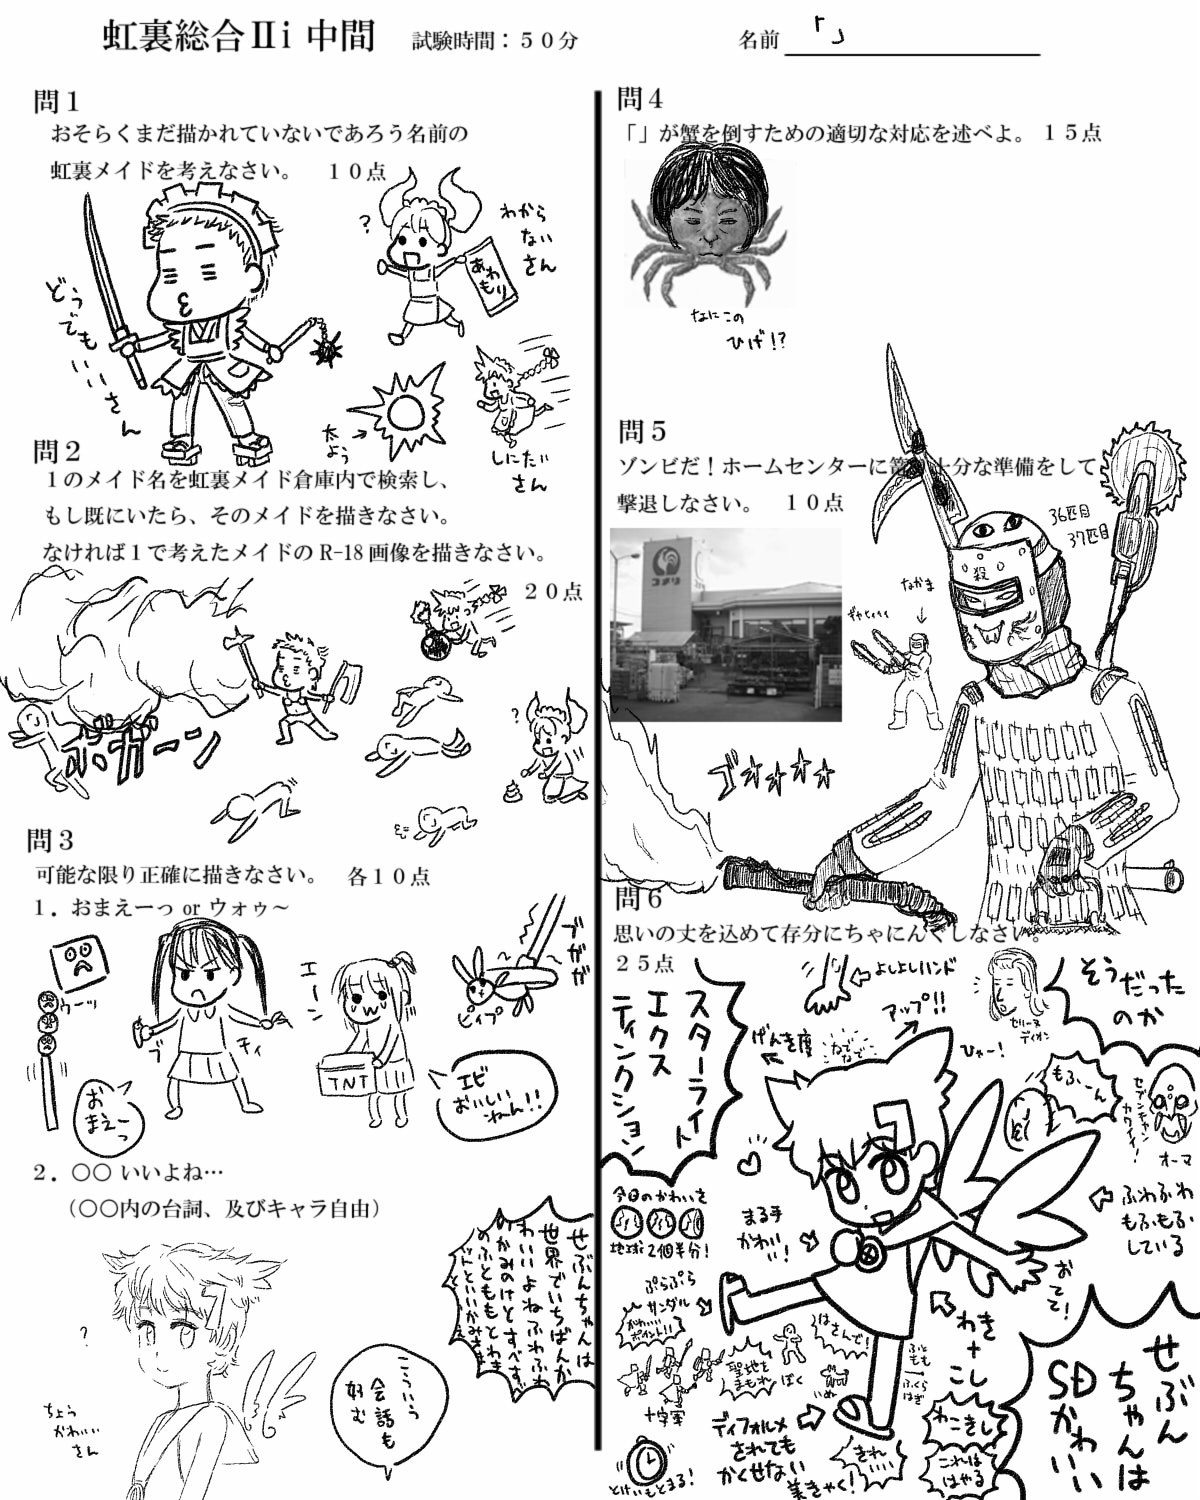 虹裏総合Ⅱi 中間
試験時間：５０分
名前 「」
問１
おそらくまだ描かれていないであろう名前の
虹裏メイドを考えなさい。　１０点
どうでもいいさん
？
わから
ない
さん
あわもり
太よう
しにたい
さん
問２
１のメイド名を虹裏メイド倉庫内で検索し、
もし既にいたら、そのメイドを描きなさい。
なければ１で考えたメイドのR-18画像を描きなさい。
２０点
ボガーン
？
問３
可能な限り正確に描きなさい。　各１０点
１．おまえーっ or ウォゥ～
ウーッ
ブ
チィ
おまえーっ
エーン
TNT
ビィブ
ブガガガ
エビ
おいしい
ねん!!
２．〇〇 いいよね…
（〇〇内の台詞、及びキャラ自由）
？
ちょう
かわいい
さん
こういう
会話も
好む
せぶんちゃんは
世界でいちばんか
わいいよねふわふわ
のかみのけとすべすべ
のふとももとわき
問４
「」が蟹を倒すための適切な対応を述べよ。１５点
なにこの
ひげ!?
問５
ゾンビだ！ホームセンターに
十分な準備をして
撃退しなさい。　１０点
コメリ
36匹目
37匹目
殺
なかま
ゴ☆☆☆☆
問６
思いの丈を込めて存分にちゃにんぐしなさい。
２５点
スターライト
エクス
ティンクション
よしよしハンド
アップ!!
げんき度
なでなで
セリーヌ
ディオン
ひゃー!
そうだった
のか
もふーん
虹
セブンチャン
カワイイ!
オーマ
ふわふわ
もふもふ
している
今日のかわいさ
地球2個半分!
まる手
かわい
い!
おてて!
ぷらぷら
サンダル
かわいい
ポイント!!
わき
+
こし
はさんで!
聖地を
まもれ
ぼく
いぬ
十字軍
ふともも
ふくらはぎ
わこきし
これは
はやる
ディフォルメ
されても
かくせない
美きゃく!
きれいい
とけいもとまる!
せぶん
ちゃんは
SDかわいい